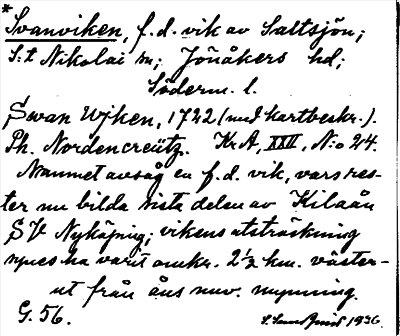 * Svanviken, f.d. vik av Saltsjön;
S:t Nikolai sn; Jönåkers hd;
Söderm. l.
Swan Wjken, 1722 (med kartbeskr.).
Ph. Nordencreütz. Kr A, XXII, N:o 24.
Namnet avsåg en f.d. vik, vars res-
ter nu bilda sista delen av Kilaån
SV Nyköping; vikens utsträckning
synes ha varit omkr. 2 ½ km. väster-
ut från åns nuv. mynning.
G. 56. 1936.